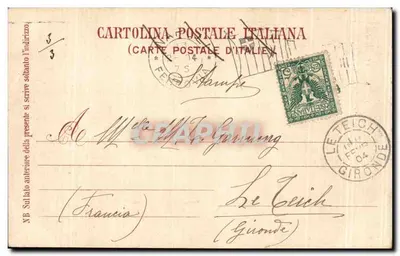 CARTOLINA POSTALE ITALIANA
(CARTE POSTALE D'ITALIE)
3/3
Stampe
A Mlle M. T.
Le Teich
(Francia)
(Gironde)
LE TEICH
04
GIRONDE
NB Sul lato anteriore della presente si scrive soltanto l'indirizzo